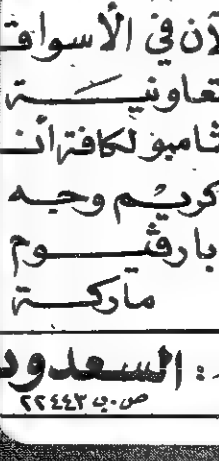 لآن في الأسواق
تعاونيــة
شامبو لكافة أنـ
كريم وجـه
بارفـوم
ماركـة
: السعدود
ص.ب ٢٢٤٤٣